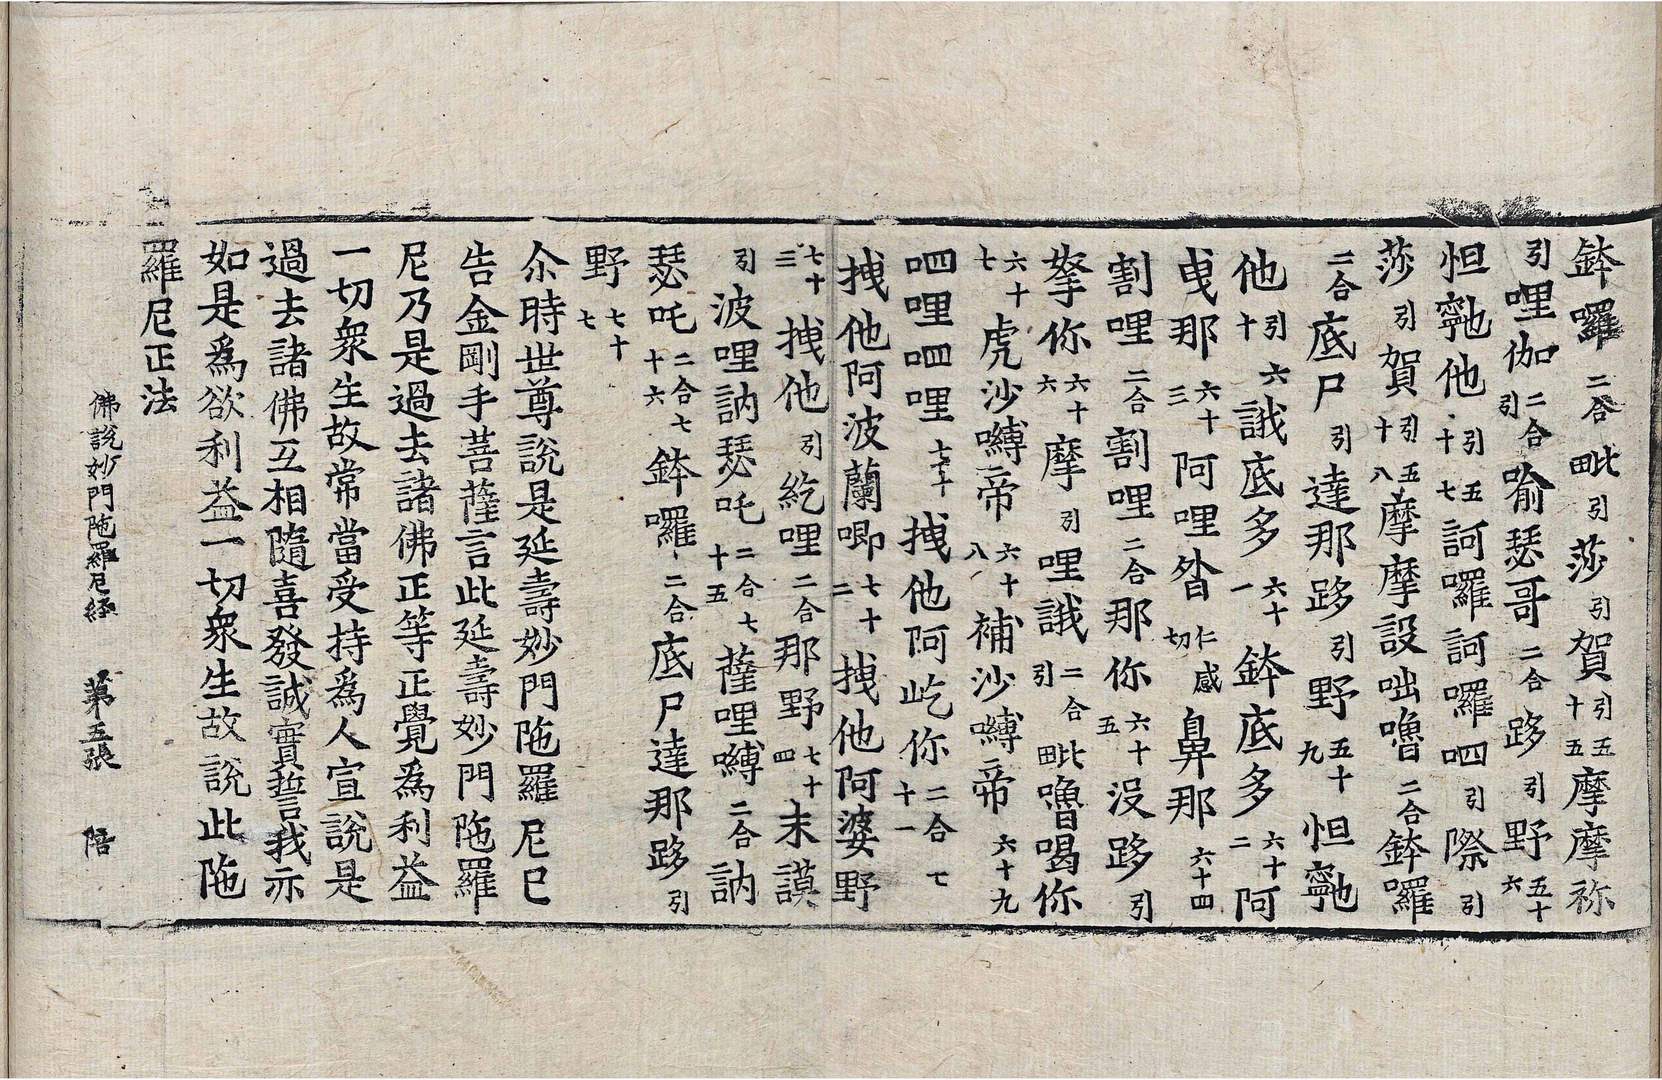 鉢囉二合毗引莎引賀引五十五摩摩祢
引哩伽二合引喻瑟哥二合跢引野五十六
怛𩕳他引五十七訶囉訶囉呬引際引
莎引賀引五十八摩摩設咄嚕二合鉢囉
二合底尸引達那跢引野五十九怛𩕳
他引六十誐底多六十一鉢底多六十二阿
曳那六十三阿哩昝仁感切鼻那六十四
割哩二合割哩二合那你六十五沒跢引
拏你六十六摩引哩誐二合引毗嚕喝你
六十七虎沙嚩帝六十八補沙嚩帝六十九
呬哩呬哩七十拽他阿屹你二合七十一
拽他阿波蘭唧七十二拽他阿婆野
七十三拽他引紇哩二合那野七十四末謨
引波哩訥瑟吒二合七十五薩哩嚩二合訥
瑟吒二合七十六鉢囉二合底尸達那跢引
野七十七
尒時世尊說是延壽妙門陁羅尼已
告金剛手菩薩言此延壽妙門陁羅
尼乃是過去諸佛正等正覺為利益
一切衆生故常當受持為人宣說是
過去諸佛互相隨喜發誠實誓我亦
如是為欲利益一切衆生故說此陁
羅尼正法
佛說妙門陁羅尼経 第五張 陪